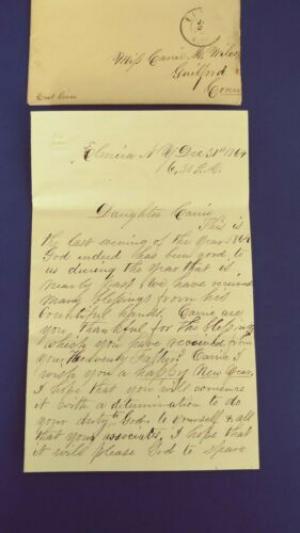 Miss Carrie M. Wilcox
Guilford
Conn
Elmira N Y Dec 31st 1864
6,30 P.M.
Daughter Carrie
This is
the last evening of the year 1864
God indeed has been good to
us during the year that is
nearly past We have received
many blessings from his
bountiful hands. Carrie are
you thankful for the blessings
which you have received from
your Heavenly Father? Carrie I
wish you a happy New Year.
I hope that you will comence
it with a ditermination to do
your duty to God, to yourself & all
that you associate. I hope that
it will please God to spare